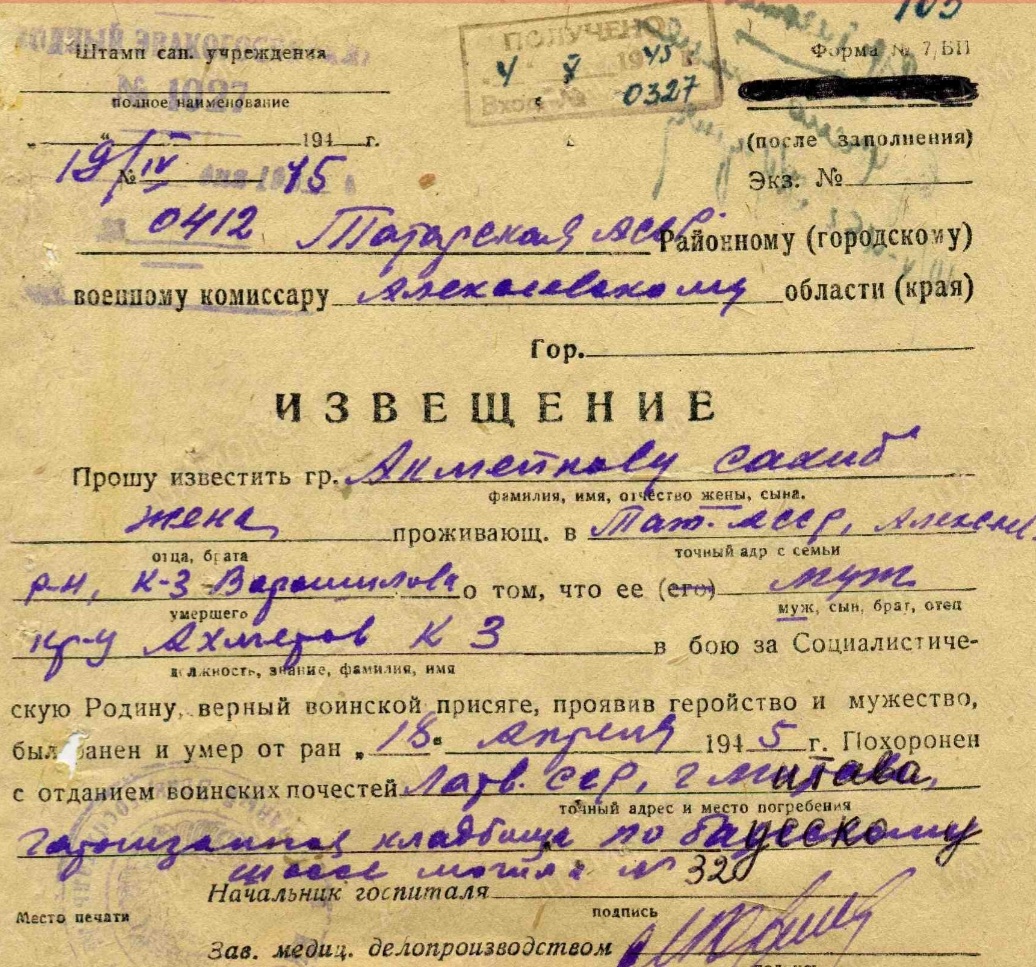 103
Штамп сан. учреждения
ПОЛУЧЕНО
Форма № 7/БП
полное наименование
4 V 1945 г.
Вход. № 0327
194 г.
(после заполнения)
19/IV 45
№
Экз. №
0412 Татарская АССР Районному (городскому)
военному комиссару Алексеевскому области (края)
Гор.
ИЗВЕЩЕНИЕ
Прошу известить гр. Ахметнову Сахиб
фамилия, имя, отчество жены, сына.
жена проживающ. в Тат. АССР, Алексе
отца, брата
точный адр с семьи
р-н, К-З Ворошилова о том, что ее (его) муж
умершего
муж, сын, брат, отец
кр-ц Ахметов К З в бою за Социалистиче-
должность, звание, фамилия, имя
скую Родину, верный воинской присяге, проявив геройство и мужество,
был ранен и умер от ран „18“ Апреля 1945 г. Похоронен
с отданием воинских почестей Латв. ССР, г Митава,
точный адрес и место погребения
кладбище по Баусскому
шоссе могила № 320
Начальник госпиталя
Место печати
подпись
Зав. медиц. делопроизводством